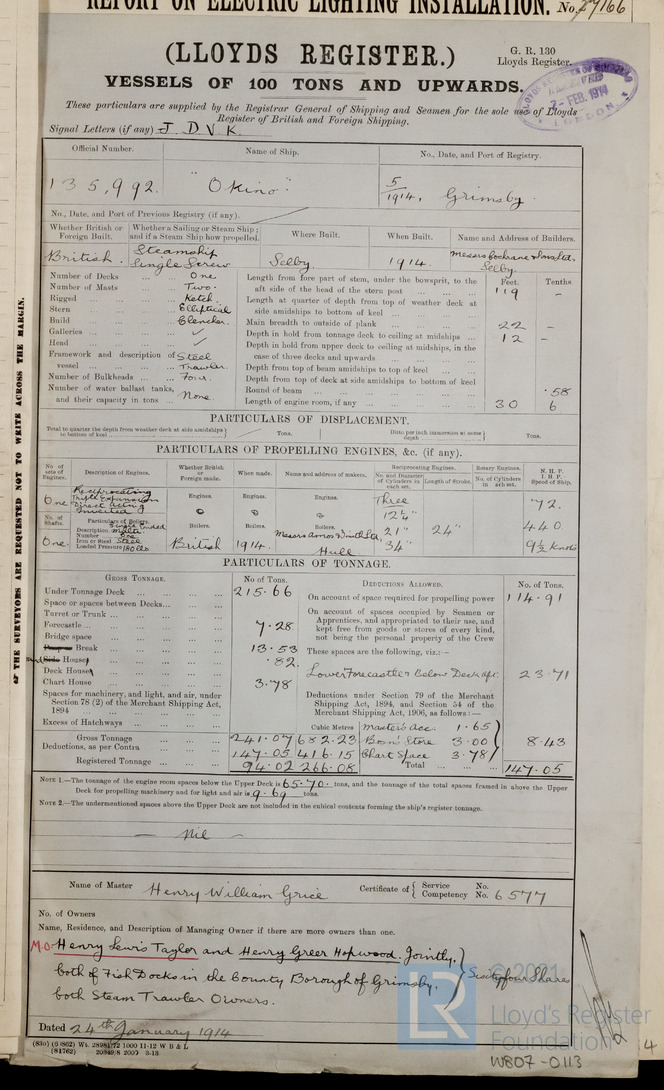 REPORT ON ELECTRIC LIGHTING INSTALLATION. No.
(LLOYDS REGISTER.)
G. R. 130
Lloyds Register.
VESSELS OF 100 TONS AND UPWARDS.
2- FEB. 1914
LONDON.
These particulars are supplied by the Registrar General of Shipping and Seamen for the sole use of Lloyds
Register of British and Foreign Shipping.
Signal Letters (if any) J. D V K.
Official Number. Name of Ship. No., Date, and Port of Registry.
135,992. "Okino." 5/1914, Grimsby.
No., Date, and Port of Previous Registry (if any).
Whether British or Foreign Built. Whether a Sailing or Steam Ship; and if a Steam Ship how propelled. Where Built. When Built. Name and Address of Builders.
British. Steamship Single Screw Selby. 1914. Messrs Cochrane & Sons Ltd. Selby.
Number of Decks ... One.
Number of Masts ... Two.
Rigged ... Ketch.
Stern ... Elliptical
Build ... Clencher.
Galleries ... ✓
Head ... ✓
Framework and description of vessel ... Steel Trawler.
Number of Bulkheads ... Four.
Number of water ballast tanks, and their capacity in tons ... None.
Feet. Tenths
Length from fore part of stem, under the bowsprit, to the aft side of the head of the stern post ... 119 –
Length at quarter of depth from top of weather deck at side amidships to bottom of keel ...
Main breadth to outside of plank ... 22 –
Depth in hold from tonnage deck to ceiling at midships ... 12 –
Depth in hold from upper deck to ceiling at midships, in the case of three decks and upwards
Depth from top of beam amidships to top of keel ...
Depth from top of deck at side amidships to bottom of keel
Round of beam ... .58
Length of engine room, if any ... 30 6
PARTICULARS OF DISPLACEMENT.
Total to quarter the depth from weather deck at side amidships to bottom of keel ... Tons. Ditto per inch immersion at same depth Tons.
PARTICULARS OF PROPELLING ENGINES, &c. (if any).
No. of sets of Engines. Description of Engines. Whether British or Foreign made. When made. Name and address of makers. Reciprocating Engines. Rotary Engines. N. H. P. I. H. P. Speed of Ship.
No. and Diameter of Cylinders in each set. Length of Stroke. No. of Cylinders in each set.
One Reciprocating Triple Expansion Direct Acting Inverted Engines. Engines. Engines. Three 12¼" 72.
No. of Shafts. Particulars of Boilers. Boilers. Boilers. Boilers. 21" 24" 440
One. Description Single Ended Multr. Number One Iron or Steel Steel Loaded Pressure 180 lbs British 1914. Messrs Amos & Smith Ltd. Hull 34" 9½ knots
PARTICULARS OF TONNAGE.
GROSS TONNAGE. No. of Tons. DEDUCTIONS ALLOWED. No. of Tons.
Under Tonnage Deck ... 215.66
Space or spaces between Decks...
Turret or Trunk ...
Forecastle ... 7.28
Bridge space
Break 13.53
House .82
Deck House
Chart House 3.78
Spaces for machinery, and light, and air, under Section 78 (2) of the Merchant Shipping Act, 1894
Excess of Hatchways ...
Cubic Metres
Gross Tonnage ... 241.07 682.23
Deductions, as per Contra ... 147.05 416.15
Registered Tonnage ... 94.02 266.08
On account of space required for propelling power 114.91
On account of spaces occupied by Seamen or Apprentices, and appropriated to their use, and kept free from goods or stores of every kind, not being the personal property of the Crew
These spaces are the following, viz.:—
Lower Forecastle & Below Deck aft. 23.71
Deductions under Section 79 of the Merchant Shipping Act, 1894, and Section 54 of the Merchant Shipping Act, 1906, as follows:—
Master's acc. 1.65
Bosn' Store 3.00
Chart Space 3.78
8.43
Total ... 147.05
NOTE 1.—The tonnage of the engine room spaces below the Upper Deck is 65.70 tons, and the tonnage of the total spaces framed in above the Upper
Deck for propelling machinery and for light and air is 9.69 tons.
NOTE 2.—The undermentioned spaces above the Upper Deck are not included in the cubical contents forming the ship's register tonnage.
— Nil —
Name of Master Henry William Grice Certificate of Service Competency No. No. 6577
No. of Owners
Name, Residence, and Description of Managing Owner if there are more owners than one.
M.O. Henry Lewis Taylor and Henry Greer Hopwood. Jointly,
both of Fish Docks in the County Borough of Grimsby,
both Steam Trawler Owners.
Sixty four Shares
Dated 24th January 1914
(81762) 20849/8 2000 3-13
OF THE SURVEYORS ARE REQUESTED NOT TO WRITE ACROSS THE MARGIN.
© 2021
LR
Lloyd's Register
Foundation
W807-0113